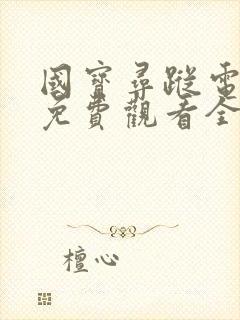 國寶尋蹤電
免費觀看全
檀心